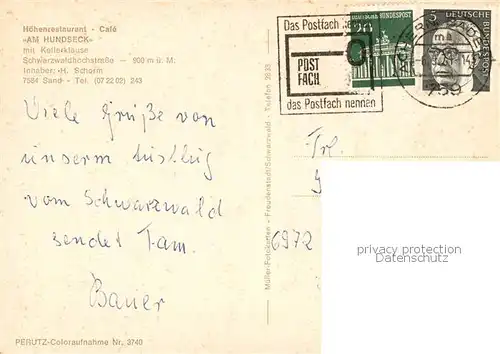 Höhenrestaurant - Café
»AM HUNDSECK«
mit Kellerklause
Schwarzwaldhochstraße - 900 m ü. M.
Inhaber: H. Schorm
7584 Sand - Tel. (0 72 02) 243
Viele Grüße von
unserm Ausflug
vom Schwarzwald
sendet Fam.
Bauer
PERUTZ-Coloraufnahme Nr. 3740
Müller-Fotokarten - Freudenstadt/Schwarzwald - Telefon
Das Postfach
POST
FACH
das Postfach nennen
20
DEUTSCHE BUNDESPOST
5
DEUTSCHE
BUNDESPOST
759
Frl.
6972
privacy protection
Datenschutz